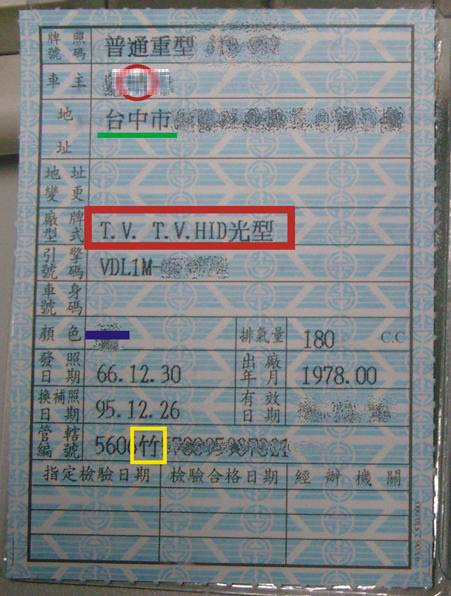 牌照號碼 普通重型
車主
地址 台中市
地址變更
廠牌型式 T.V. T.V.HID光型
引擎號碼 VDL1M-
車身號碼
顏色 排氣量 180 C.C
發照日期 66.12.30 出廠年月 1978.00
換補照日期 95.12.26 有效日期
管轄編號 5606竹
指定檢驗日期 檢驗合格日期 經辦機關